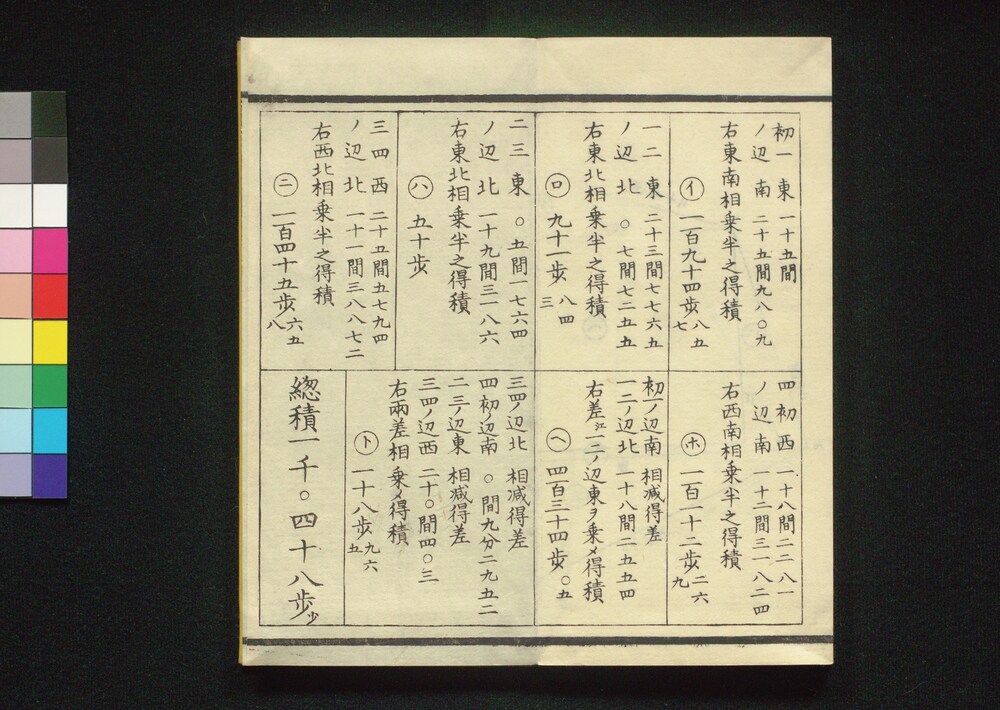 初一 東 一十五間
ノ辺 南 二十五間九八〇九
右東南相乗半之得積
㋑ 一百九十四歩八五七
一二 東 二十三間七七六五
ノ辺 北 〇七間七二五五
右東北相乗半之得積
㋺ 九十一歩八四三
二三 東 〇五間一七六四
ノ辺 北 一十九間三一八六
右東北相乗半之得積
㋩ 五十歩
三四 西 二十五間五七九四
ノ辺 北 一十一間三八八七二
右西北相乗半之得積
㊁ 一百四十五歩六五八
四初 西 一十八間二二八一
ノ辺 南 一十二間三一八二四
右西南相乗半之得積
㋭ 一百一十二歩二六九
初一ノ辺南 相減得差
一二ノ辺北 一十八間二五五四
右差江一二ノ辺東ヲ乗〆得積
㋬ 四百三十四歩〇五
三四ノ辺北 相減得差
四初ノ辺南 〇間九分二九五二
二三ノ辺東 相減得差
三四ノ辺西 二十〇間四〇三
右両差相乗〆得積
㋣ 一十八歩九六五
總積一千〇四十八歩少